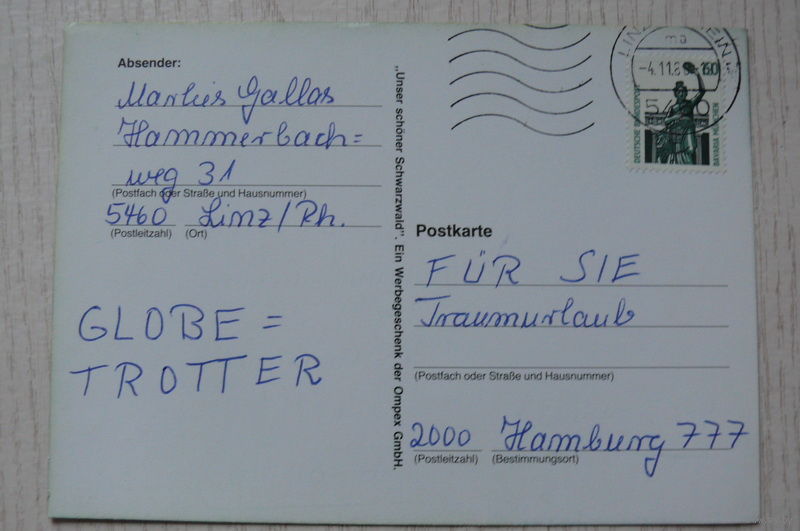 Absender:
Marlies Gallas
Hammerbach=
weg 31
(Postfach oder Straße und Hausnummer)
5460 Linz/Rh.
(Postleitzahl) (Ort)
GLOBE=
TROTTER
„Unser schöner Schwarzwald". Ein Werbegeschenk der Ompex GmbH.
DEUTSCHE BUNDESPOST
60
BAVARIA MÜNCHEN
Postkarte
FÜR SIE
Traumurlaub
(Postfach oder Straße und Hausnummer)
2000 Hamburg 777
(Postleitzahl) (Bestimmungsort)